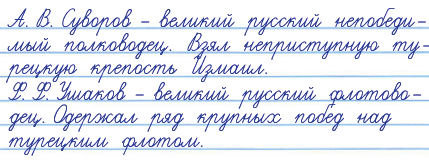 А. В. Суворов – великий русский непобеди-
мый полководец. Взял неприступную ту-
рецкую крепость Измаил.
Ф. Ф. Ушаков – великий русский флотово-
дец. Одержал ряд крупных побед над
турецким флотом.